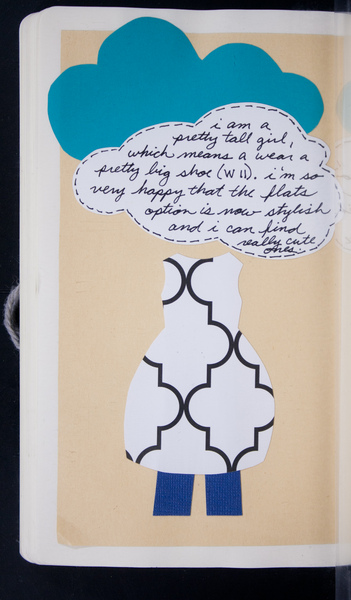 i am a
pretty tall girl,
which means a wear a
pretty big shoe (W 11). i'm so
very happy that the flats
option is now stylish
and i can find
really cute
ones.